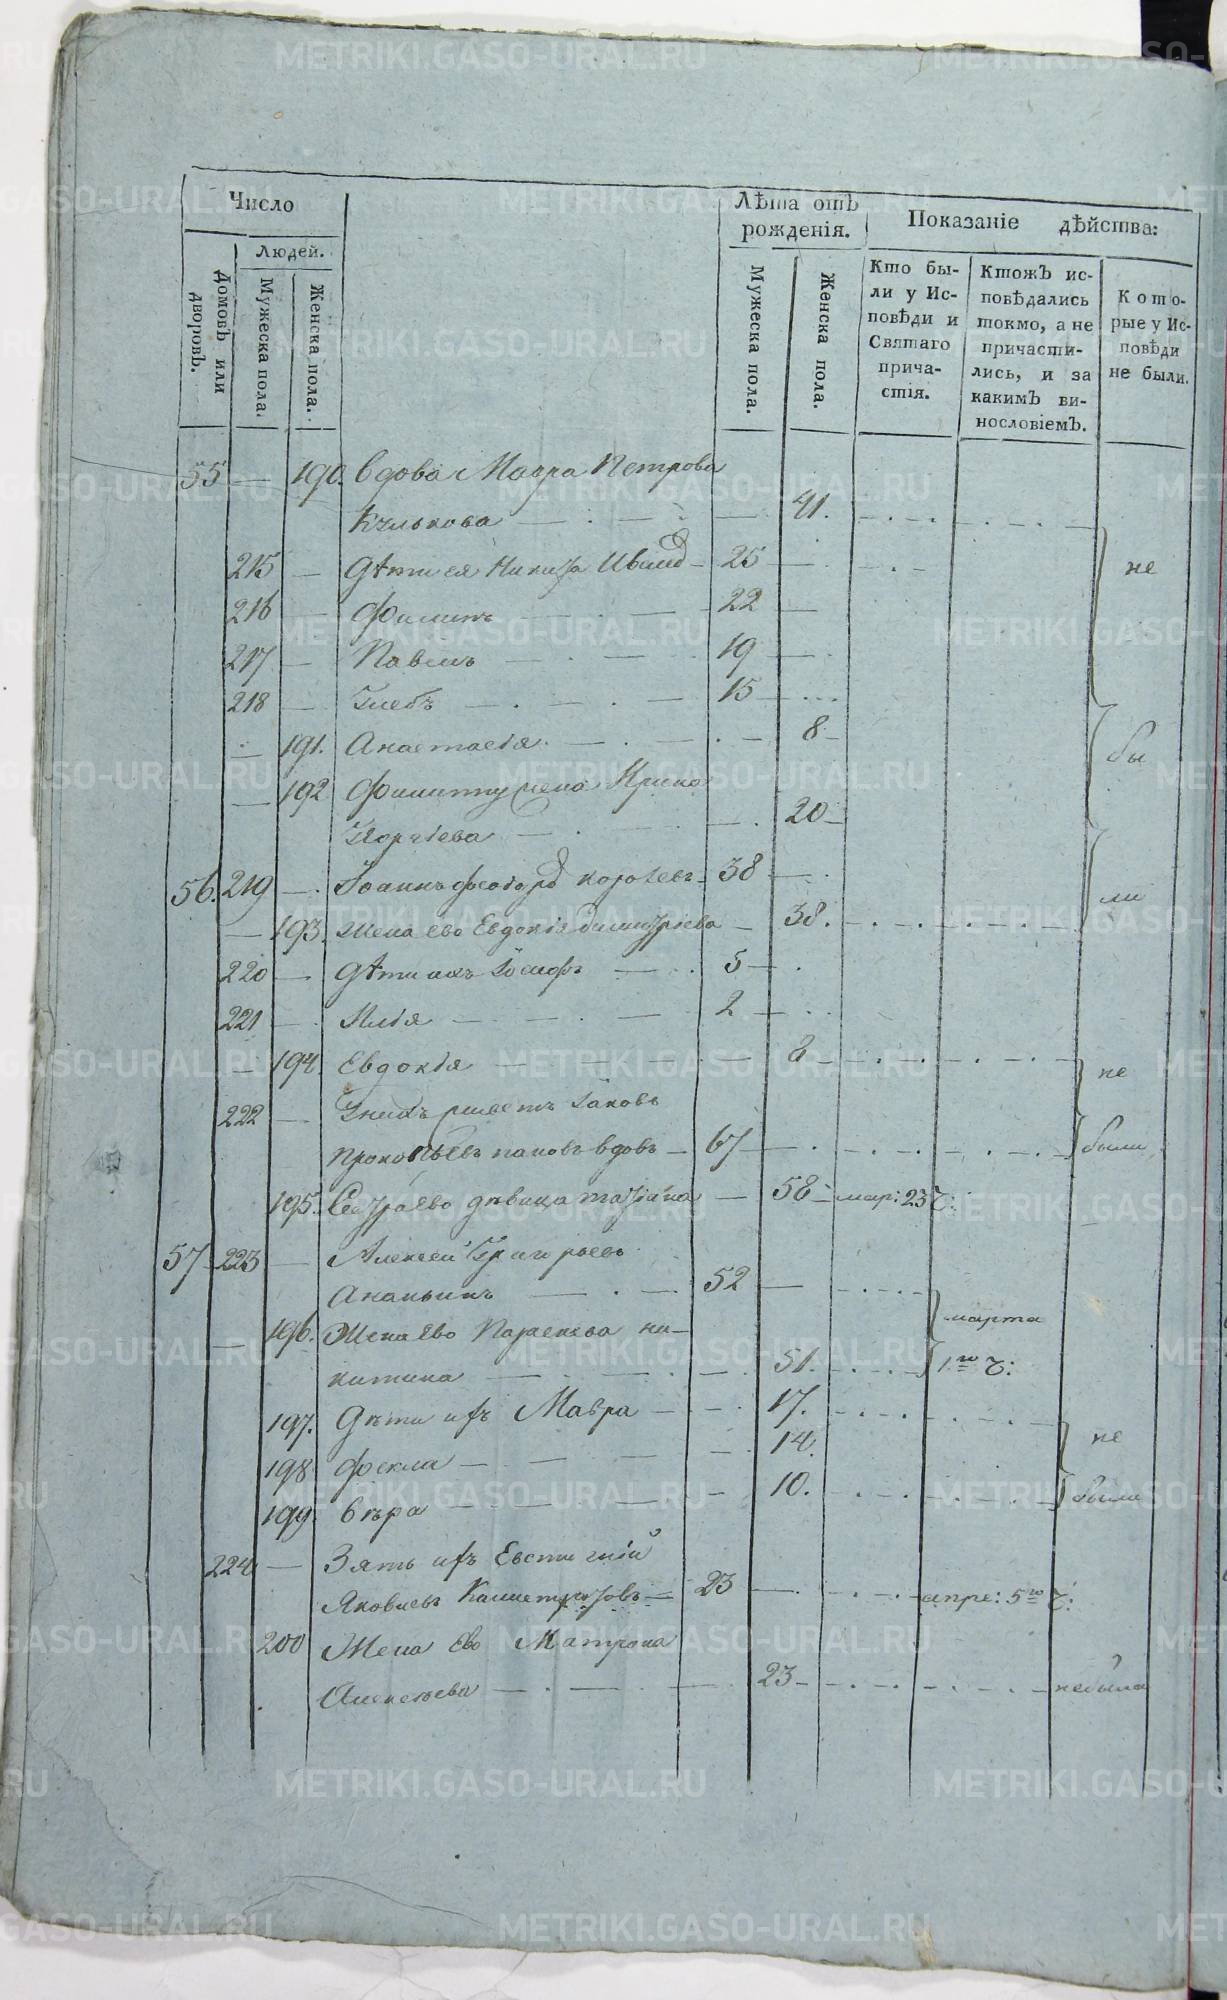 Число
Людей.
Домовъ или дворовъ.
Мужеска пола.
Женска пола.
Лѣта отъ рожденія.
Мужеска пола.
Женска пола.
Показаніе дѣйства:
Кто бы-
ли у Ис-
повѣди и
Святаго
прича-
стія.
Ктожъ ис-
повѣдались
токмо, а не
причасти-
лись, и за
какимъ ви-
нословіемъ.
Кото-
рые у Ис-
повѣди
не были.
55 — 190. вдова Мавра Петрова
41.
215 — дѣти ея Никита 25 не
216 — Филипъ 22
217 — Павелъ 19
218 — Глебъ 15
— 191. Анастасія 8 бы
— 192 Филиппу жена Ирина
20
56. 219 — Іоаннъ Феодоров 38 ли
— 193. жена ево Евдокія димитріева — 38.
220 — дѣти ихъ Іосифъ 5
221 — Илія 2
— 194. Евдокія 8 не
222 — У нихъ живетъ Іаковъ
Прокопьевъ пановъ вдовъ — 67 были
195. Сестра ево дѣвица татіана — 58 — мар: 23 Ч:
57 223 — Алексей Григорьевъ
Ананьинъ 52
— 196. Жена Ево Параскева ни- марта
китина 51. 1го Ч:
197. Дѣти ихъ Мавра 17. не
198 Фекла 14.
199 вѣра 10. были
224 — Зять ихъ Евстигній
Яковлевъ 23 апре: 5го Ч:
200 Жена Ево Матрона
Алексѣева 23 небыла
METRIKI.GASO-URAL.RU